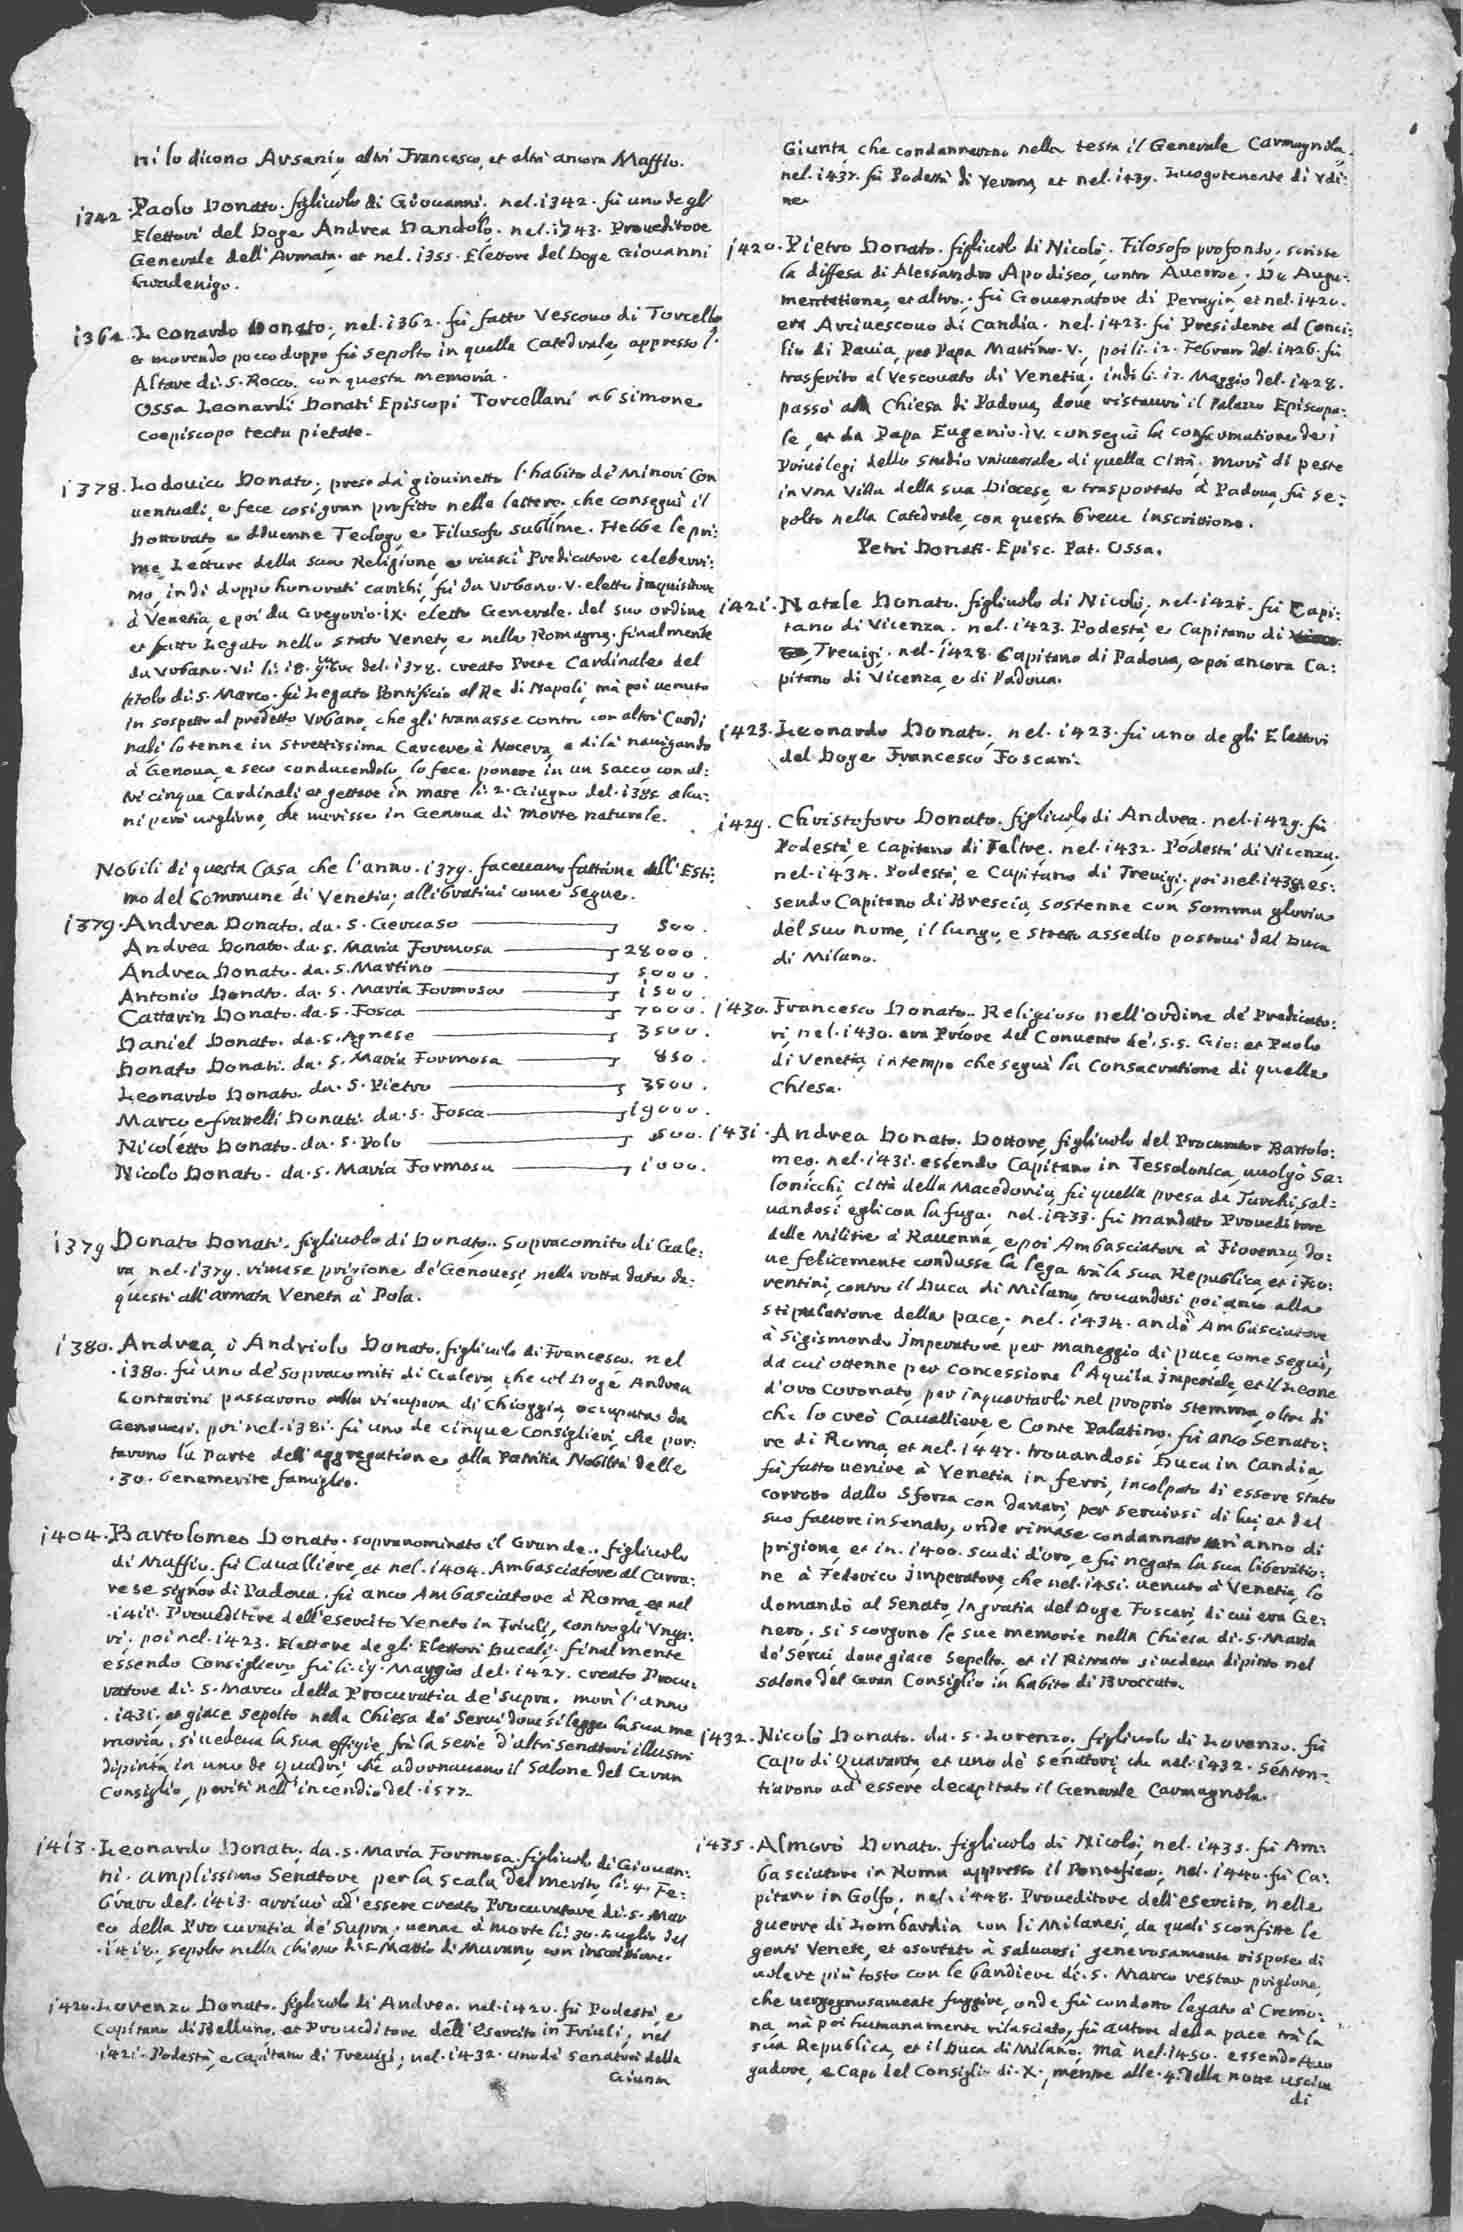 ni lo dicono Arsenio, altri Francesco, et altri ancora Maffio.
1342. Paolo Donato. figliuolo di Giovanni. nel. 1342. fù uno degl'
Elettori del Doge Andrea Dandolo. nel. 1343. Proueditore
Generale dell'Armata. et nel. 1355. Elettore del Doge Giouanni
Gradenigo.
1362. Leonardo Donato, nel. 1362. fù fatto Vescouo di Torcello
e morendo pocco doppo fù sepolto in quella Catedrale, appresso l'
Altare di. S. Rocco. con questa memoria.
Ossa Leonardi Donati Episcopi Torcellani ab simone
coepiscopo tecta pietate.
1378. Lodouico Donato, prese dà giouinetto l'habito de' Minori Con
uentuali, e fece così gran profitto nelle lettere, che conseguì il
Dottorato, e diuenne Teologo, e Filosofo sublime. Hebbe le pri:
me Letture della sua Religione, e riuscì Predicatore celeberri:
mo, indi doppo honorati carichi, fù da Vrbano. V. eletto Inquisitore
à Venetia, e poi da Gregorio. IX. eletto Generale. del suo ordine
et fatto Legato nello stato Veneto, e nella Romagna, finalmente
da Vrbano. VI. li. 18. 9bre del. 1378. creato Prete Cardinale del
titolo di. S. Marco. fù Legato Pontificio al Re di Napoli, mà poi uenuto
in sospetto al predetto Vrbano, che gli tramasse contro con altri Cardi
nali, lo tenne in strettissima Carcere à Nocera, e di là nauigando
à Genoua, e seco conducendolo, lo fece ponere in un sacco, con al:
tri cinque Cardinali, et gettare in mare li. 2. Giugno del. 1385. alcu:
ni però uogliono, che morisse in Genoua di morte naturale.
Nobili di questa Casa che l'anno. 1379. faceuano fattione dell'Esti:
mo del Commune di Venetia, allibrati come segue.
1379. Andrea Donato. da. S. Geruaso — 500.
Andrea Donato. da. S. Maria Formosa — 28000.
Andrea Donato. da. S. Martino — 5000.
Antonio Donato. da. S. Maria Formosa — 1500.
Cattarin Donato. da. S. Fosca — 7000.
Daniel Donato. da. S. Agnese — 3500.
Donato Donati. da. S. Maria Formosa — 850.
Leonardo Donato. da. S. Pietro — 3500.
Marco e fratelli Donati. da. S. Fosca — 19000.
Nicoletto Donato. da. S. Polo — 500.
Nicolo Donato. da. S. Maria Formosa — 1000.
1379 Donato Donati. figliuolo di Donato. Sopracomito di Gale:
ra, nel. 1379. rimase prigione de' Genouesi, nella rotta data da:
questi all'armata Veneta à Pola.
1380. Andrea, ò Andriolo Donato. figliuolo di Francesco. nel
.1380. fù uno de' Sopracomiti di Galera, che col Doge Andrea
Contarini passarono alla ricupera di Chioggia, occupata da
Genouesi, poi nel. 1381. fù uno de cinque Consiglieri, che por:
tarono la Parte dell'aggregatione alla Patritia Nobiltà delle
.30. benemerite famiglie.
1404. Bartolomeo Donato. sopranominato il Grande. figliuolo
di Maffio. fù Cavalliere, et nel. 1404. Ambasciatore al Carra:
rese signor di Padoua. fù anco Ambasciatore à Roma, et nel
.1411. Proueditore dell'esercito Veneto in Friuli, contro gli Vnga:
ri. poi nel. 1423. Elettore degli Elettori Ducali. finalmente
essendo Consigliere, fù li. 19. Maggio del. 1427. creato Procu:
ratore di. S. Marco della Procuratia de' Supra. morì l'anno
.1431. et giace sepolto nella Chiesa de' Serui doue si legge la sua me
moria. si uedeua la sua effigie, frà la serie d'altri senatori illustri
dipinta in uno de quadri, che adornauano il Salone del Gran
Consiglio, periti nell'incendio del. 1577.
1413. Leonardo Donato. da. S. Maria Formosa. figliuolo di Giouan:
ni. amplissimo Senatore per la scala del merito, li. 4. Fe:
braro del. 1413. arriuò ad'essere creato Procuratore di. S. Mar
co della Procuratia de' Supra. uenne à morte li. 30. Luglio del
.1418. sepolto nella chiesa di S. Mattio di Murano, con inscrittione.
1420. Lorenzo Donato. figliuolo di Andrea. nel. 1420. fù Podestà, e
Capitano di Belluno, et Proueditore dell'Esercito in Friuli, nel
.1421. Podestà, e capitano di Treuigi, nel. 1432. uno de' senatori della
Giunta
Giunta, che condannarono nella testa il Generale Carmagnola.
nel. 1437. fù Podestà di Verona, et nel. 1439. Luogotenente di Vdi:
ne.
1420. Pietro Donato. figliuolo di Nicolò. Filosofo profondo, scrisse
la diffesa di Alessandro Apodiseo, contro Auerroe. De Augu:
mentatione, et altro. fù Gouernatore di Perugia, et nel. 1420.
era Arciuescouo di Candia. nel. 1423. fù Presidente al Conci:
lio di Pauia, per Papa Martino. V., poi li. 12. Febraro del. 1426. fù
trasferito al Vescouato di Venetia. indi li. 12. Maggio del. 1428.
passò alla Chiesa di Padoua, doue ristaurò il Palazzo Episcopa:
le, et da Papa Eugenio. IV. conseguì la confirmatione de i
Priuilegi dello studio vniuersale di quella Città, morì di peste
in vna Villa della sua Diocese, e trasportato à Padoua, fù se:
polto nella Catedrale, con questa breue inscrittione.
Petri Donati. Episc. Pat. Ossa.
1421. Natale Donato. figliuolo di Nicolò, nel. 1421. fù Capi:
tano di Vicenza. nel. 1423. Podestà e Capitano di
Treuigi. nel. 1428. Capitano di Padoua, e poi ancora Ca:
pitano di Vicenza, e di Padoua.
1423. Leonardo Donato, nel. 1423. fù uno degli Elettori
del Doge Francesco Foscari.
1429. Christoforo Donato. figliuolo di Andrea. nel. 1429. fù
Podestà, e Capitano di Feltre. nel. 1432. Podestà di Vicenza,
nel. 1434. Podestà, e Capitano di Treuigi, poi nel. 1438. es:
sendo Capitano di Brescia, sostenne con somma gloria
del suo nome, il lungo, e stretto assedio postoui dal Duca
di Milano.
1430. Francesco Donato. Religioso nell'ordine de' Predicato:
ri, nel. 1430. era Priore del Conuento de'. S.S. Gio: et Paolo
di Venetia, in tempo che seguì la Consacratione di quella
Chiesa.
1431. Andrea Donato. Dottore, figliuolo del Procurator Bartolo:
meo. nel. 1431. essendo Capitano in Tessalonica, uuolgò Sa:
lonicchi, città della Macedonia, fù quella presa da Turchi, sal:
uandosi egli con la fuga. nel. 1433. fù mandato Proueditore
delle Militie à Rauenna, e poi Ambasciatore à Fiorenza, do:
ue felicemente condusse la lega trà la sua Republica, et i Fio:
rentini, contro il Duca di Milano, trouandosi poi anco alla
stipulatione della pace, nel. 1434. andò Ambasciatore
à Sigismondo Imperatore per maneggio di pace, come seguì,
da cui ottenne per concessione l'Aquila Imperiale, et il Leone
d'oro Coronato, per inquartarli nel proprio stemma, oltre di
che lo creò Cauaglliere, e Conte Palatino. fù anco Senato:
re di Roma, et nel. 1447. trouandosi Duca in Candia,
fù fatto uenire à Venetia in ferri, incolpato di essere stato
corrotto dallo Sforza con danari, per seruirsi di lui, et del
suo fauore in Senato, onde rimase condannato un'anno di
prigione, et in. 1400. scudi d'oro, e fù negata la sua liberatio:
ne à Federico Imperatore, che nel. 1451. uenuto à Venetia, lo
domandò al Senato, in gratia del Doge Foscari, di cui era Ge:
nero. si scorgono le sue memorie nella Chiesa di. S. Maria
de' Serui, doue giace sepolto, et il Ritratto si uedeua dipinto nel
salone del Gran Consiglio in habito di Broccato.
1432. Nicolò Donato. da. S. Lorenzo. figliuolo di Lorenzo. fù
Capo di Quaranta, et uno de' senatori, che nel. 1432. senten:
tiarono ad'essere decapitato il Generale Carmagnola.
1435. Almorò Donato. figliuolo di Nicolò, nel. 1435. fù Am:
basciatore in Roma appresso il Pontefice, nel. 1440. fù Ca:
pitano in Golfo, nel. 1448. Proueditore dell'esercito, nelle
guerre di Lombardia con li Milanesi, da quali sconfitte le
genti Venete, et esortato à saluarsi, generosamente rispose di
uolere più tosto con le bandiere di. S. Marco restar prigione,
che uergognosamente fuggire, onde fù condotto legato à Cremo:
na, mà poi humanamente rilasciato, fù autore della pace trà la
sua Republica, et il Duca di Milano, mà nel. 1450. essendo Auo
gadore, e Capo del Consiglio di. X., mentre alle. 4. della notte usciua
di